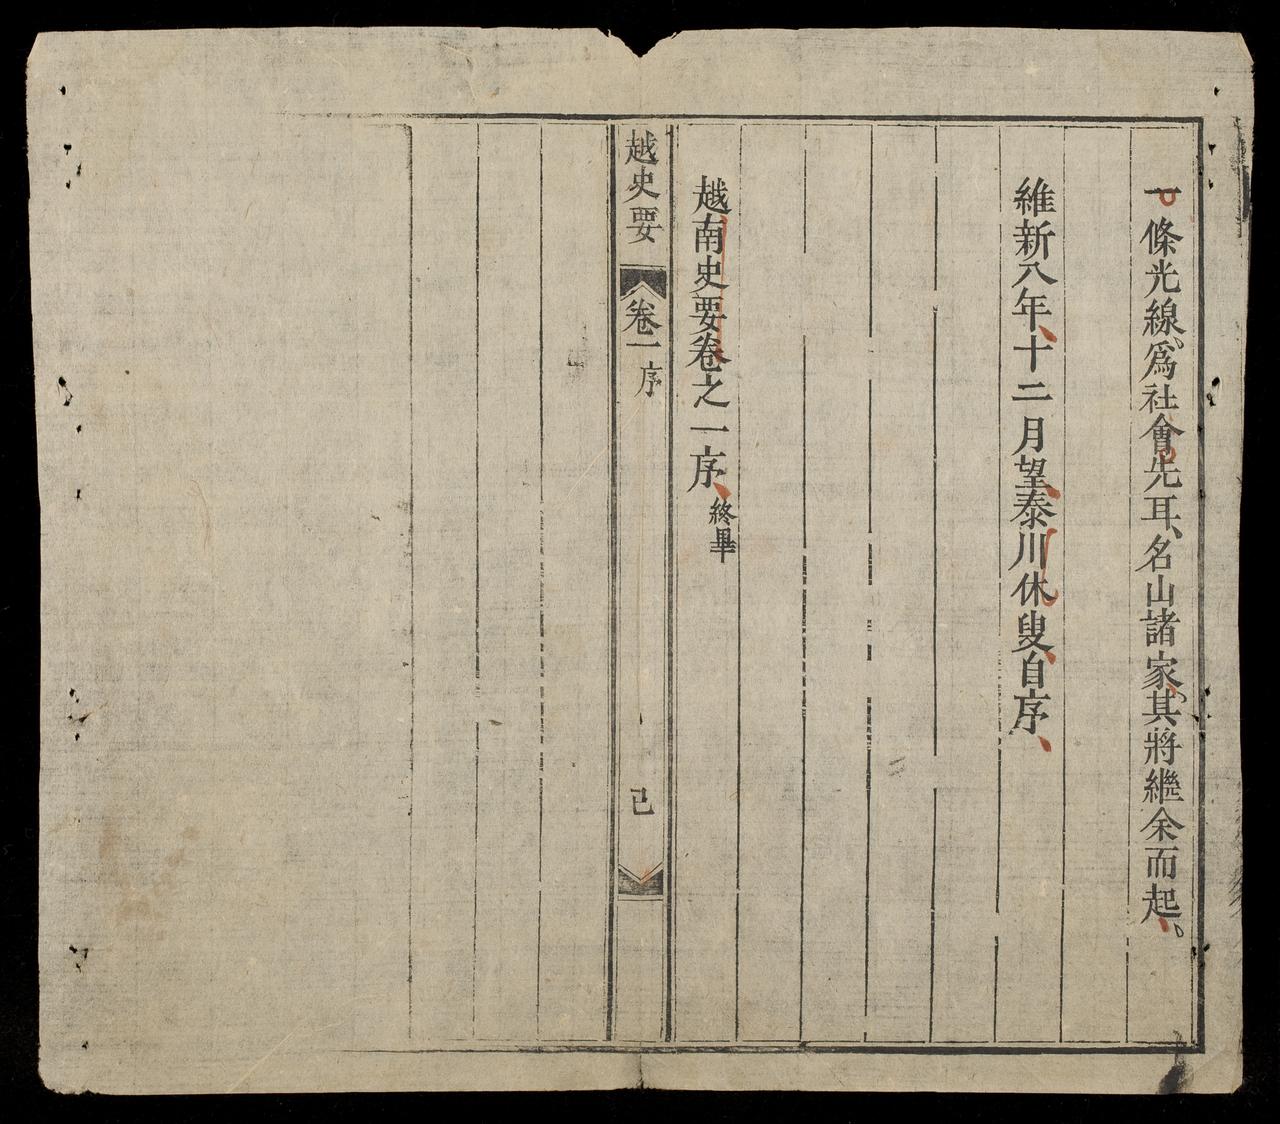 一條光線、爲社會先耳、名山諸家、其將繼余而起。
維新八年、十二月望、泰川休叟、自序、
越南史要卷之一序、終畢
越史要 卷一 序 己